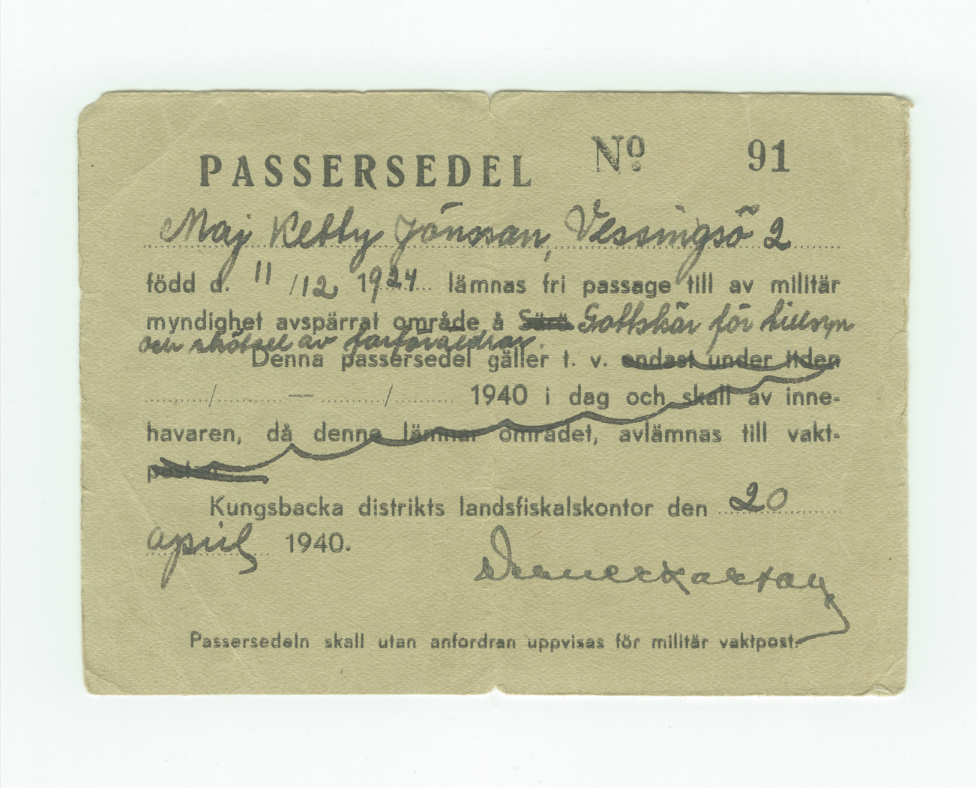 PASSERSEDEL Nº 91
Maj Ketty Jönsson, Vessingsö 2
född d. 11/12 1924 lämnas fri passage till av militär
myndighet avspärrat område å Särö Gottskär för tillsyn
och skötsel av farföräldrar.
Denna passersedel gäller t. v. endast under tiden
/ — / 1940 i dag och skall av inne-
havaren, då denna lämnar området, avlämnas till vakt-
posten
Kungsbacka distrikts landsfiskalskontor den 20
april 1940.
Passersedeln skall utan anfordran uppvisas för militär vaktpost.